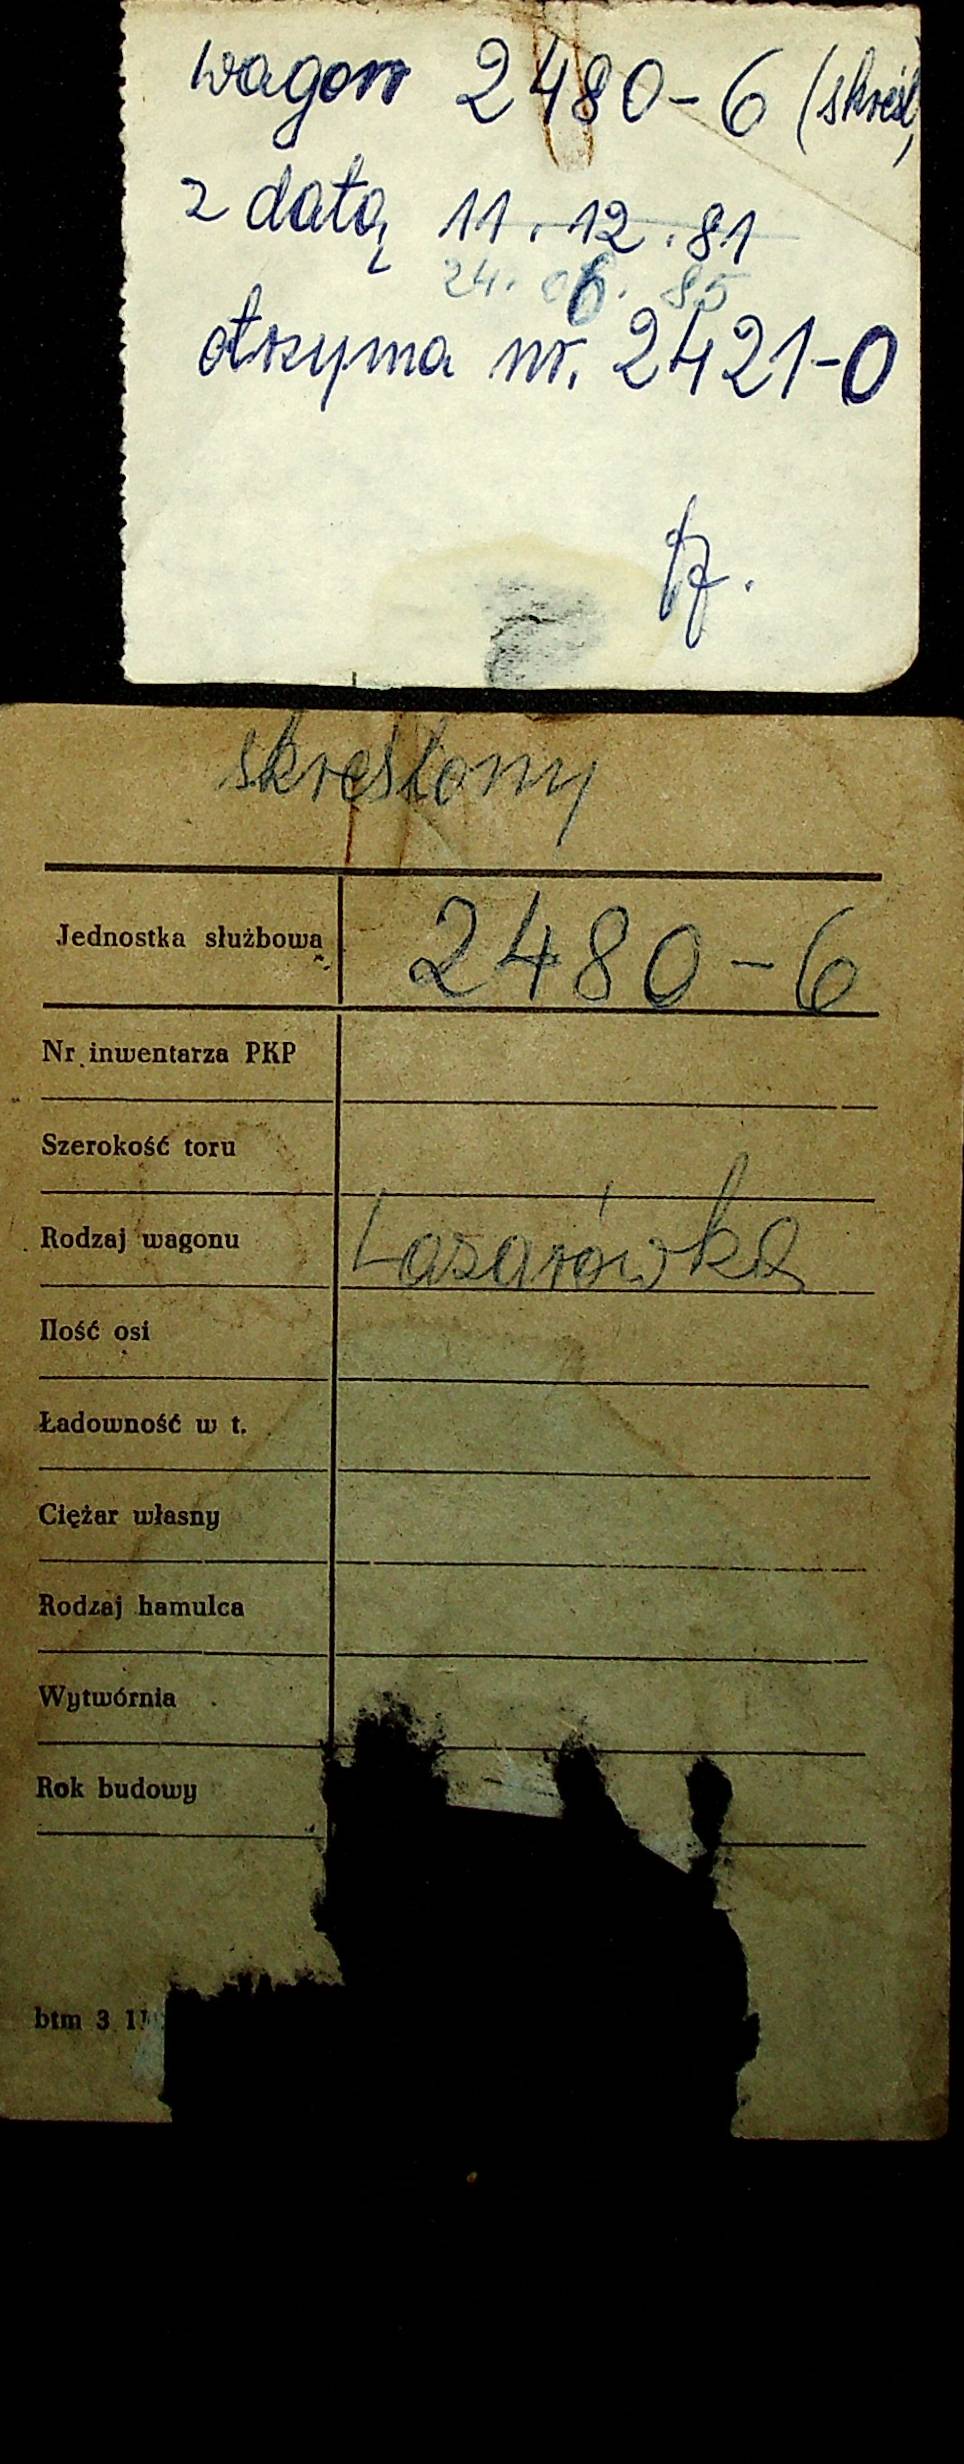 wagon 2480-6 (skreśl,
z datą 11.12.81
24.06.85
otrzyma nr. 2421-0
skreślony
Jednostka służbowa 2480-6
Nr inwentarza PKP
Szerokość toru
Rodzaj wagonu Lazarówka
Ilość osi
Ładowność w t.
Ciężar własny
Rodzaj hamulca
Wytwórnia
Rok budowy
btm 3